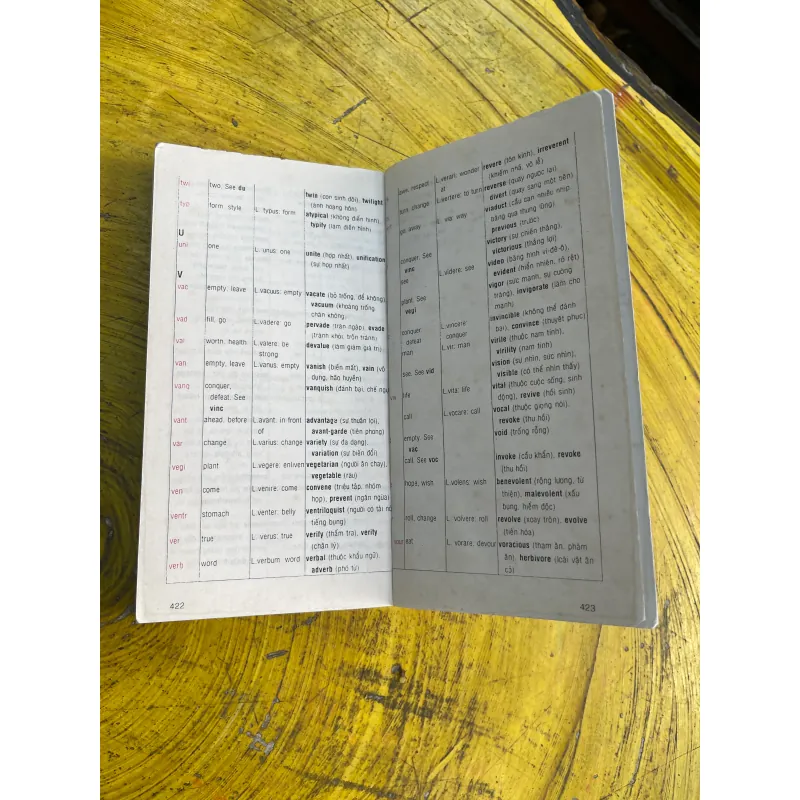 twi two. See du twin (con sinh đôi), twilight
(ánh hoàng hôn)
typ form, style L. typus: form atypical (không điển hình),
typify (làm điển hình)
U
uni one L. unus: one unite (hợp nhất), unification
(sự hợp nhất)
V
vac empty, leave L.vacuus: empty vacate (bỏ trống, để không),
vacuum (khoảng trống
chân không)
vad fill, go L.vadere: go pervade (tràn ngập), evade
(tránh khỏi, trốn tránh)
val worth, health L.valere: be devalue (làm giảm giá trị)
strong
van empty, leave L.vanus: empty vanish (biến mất), vain (vô
dụng, hão huyền)
vang conquer, vanquish (đánh bại, chế ngự
defeat. See
vinc
vant ahead, before L.avant: in front advantage (sự thuận lợi),
of avant-garde (tiên phong)
var change L.varius: change variety (sự đa dạng),
variation (sự biến đổi)
vegi plant L.vegere: enliven vegetarian (người ăn chay),
vegetable (rau)
ven come L.venire: come convene (triệu tập, nhóm
họp), prevent (ngăn ngừa)
ventr stomach L.venter: belly ventriloquist (người có tài nói
tiếng bụng)
ver true L. verus: true verify (thẩm tra), verity
(chân lý)
verb word L.verbum: word verbal (thuộc khẩu ngữ),
adverb (phó từ)
422
respect L.verari: wonder revere (tôn kính), irreverent
at (khiếm nhã, vô lễ)
turn, change L.vertere: to turn reverse (quay ngược lại)
divert (quay sang một bên)
away L. via: way viaduct (cầu cạn nhiều nhịp
băng qua thung lũng)
previous (trước)
conquer. See victory (sự chiến thắng),
vinc victorious (thắng lợi)
see L.videre: see video (băng hình vi-đê-ô),
evident (hiển nhiên, rõ rệt)
plant. See vigor (sức mạnh, sự cường
vegi tráng), invigorate (làm cho
mạnh)
conquer, L.vincere: invincible (không thể đánh
defeat conquer bại), convince (thuyết phục)
man L.vir: man virile (thuộc nam tính),
virility (nam tính)
see. See vid vision (sự nhìn, sức nhìn),
visible (có thể nhìn thấy)
life L.vita: life vital (thuộc cuộc sống, sinh
động), revive (hồi sinh)
call L.vocare: call vocal (thuộc giọng nói),
revoke (thu hồi)
empty. See void (trống rỗng)
vac
call. See voc invoke (cầu khẩn), revoke
(thu hồi)
hope, wish L.volens: wish benevolent (rộng lượng, từ
thiện), malevolent (xấu
bụng, hiểm độc)
roll, change L. volvere: roll revolve (xoay tròn), evolve
(tiến hóa)
eat L. vorare: devour voracious (tham ăn, phàm
ăn), herbivore (loài vật ăn
cỏ)
423